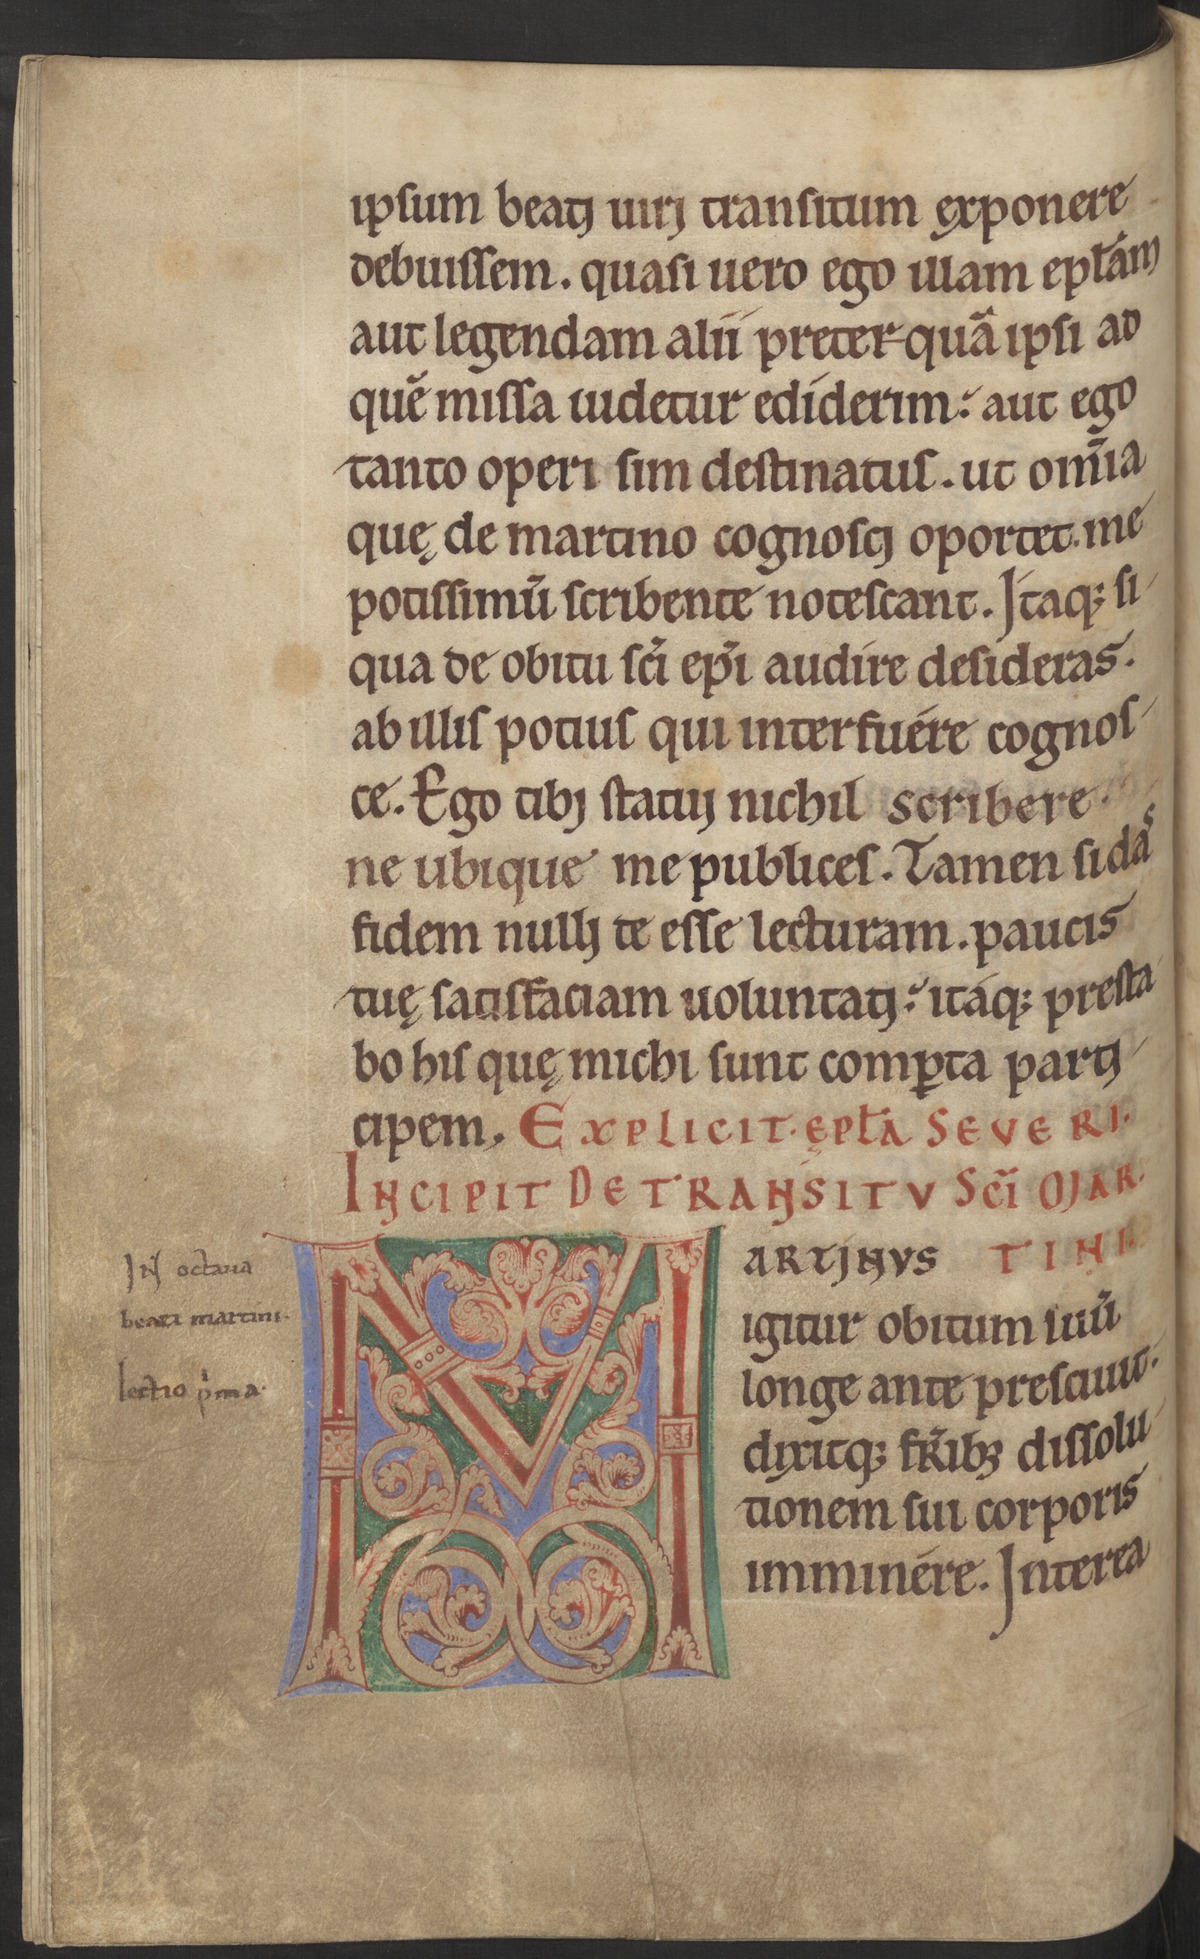 ipsum beatj uirj transitum exponere
debuissem. quasi uero ego illam epl̄am
aut legendam alii preter quā ipsi ad
quē missa uidetur ediderim: aut ego
tanto operi sim destinatus. ut om̄ia
quę de martino cognoscj oportet. me
potissimū scribente notescant. Itaq; si
qua de obitu sc̄i ep̄i audire desideras.
ab illis potius qui interfuére cognos-
ce. Ego tibj statuj nichil scribere
ne ubique me publices. Tamen si das
fidem nullj te esse lecturam. paucis
tuę satisfaciam uoluntatj: itáq; presta
bo his quę michi sunt comꝑta partj-
cipem. EXPLICIT. ępl̄a SEVERI.
INCIPIT DE TRANSITV Sc̄i MAR-
TINI
In octaua
beati martini.
lectio p̍ma.
MARTINVS
igitur obitum suū
longe ante presciuit.
dixitq; fr̄ib; dissolu-
tionem sui corporis
imminére. Interea